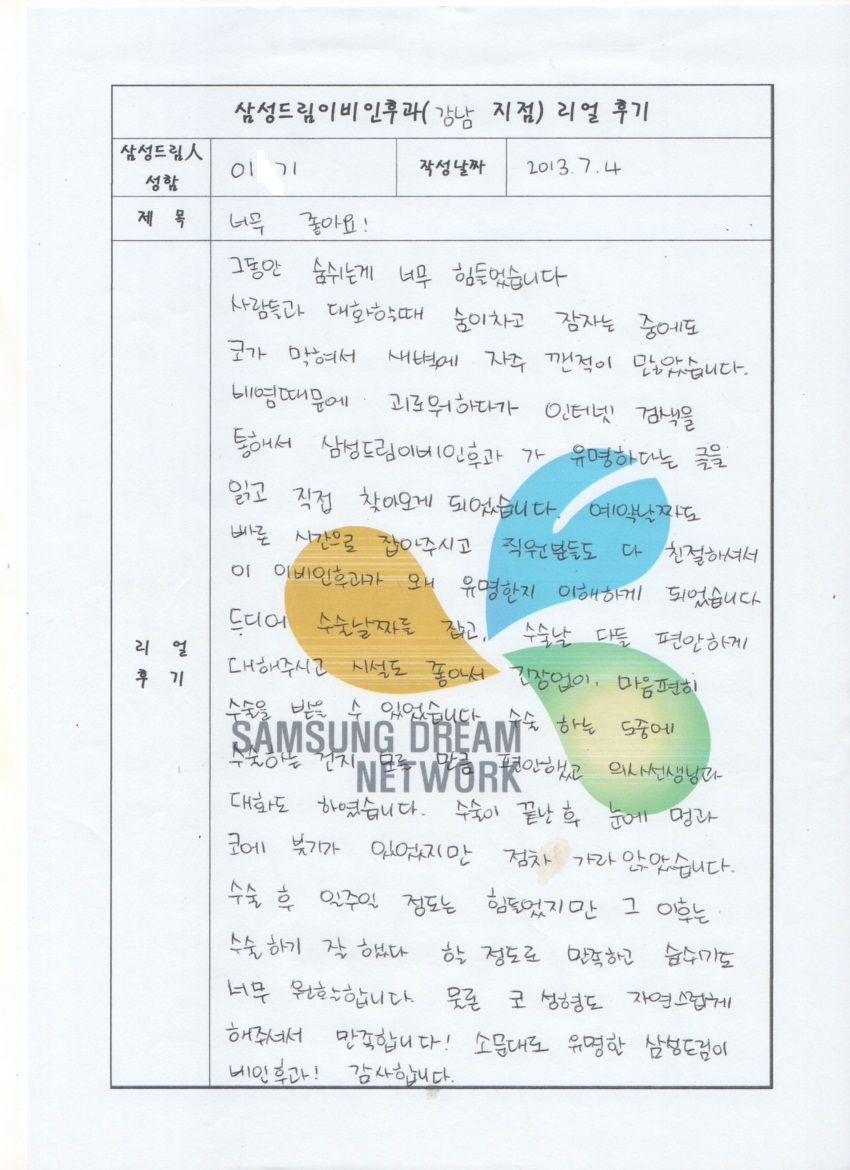 삼성드림이비인후과(강남 지점) 리얼 후기
삼성드림人 성함 이 기 작성날짜 2013.7.4
제 목 너무 좋아요!
리 얼 후 기
그동안 숨쉬는게 너무 힘들었습니다
사람들과 대화할때 숨이차고 잠자는 중에도
코가 막혀서 새벽에 자주 깬적이 많았습니다.
비염때문에 괴로워하다가 인터넷 검색을
통해서 삼성드림이비인후과 가 유명하다는 글을
읽고 직접 찾아오게 되었습니다. 예약날짜도
빠른 시간으로 잡아주시고 직원분들도 다 친절하셔서
이 이비인후과가 왜 유명한지 이해하게 되었습니다
드디어 수술날짜를 잡고, 수술날 다들 편안하게
대해주시고 시설도 좋아서 긴장없이, 마음편히
수술을 받을 수 있었습니다. 수술 하는 도중에
수술하는 건지 모를 만큼 편안했고 의사선생님과
대화도 하였습니다. 수술이 끝난 후 눈에 멍과
코에 붓기가 있었지만 점차 가라 앉았습니다.
수술 후 일주일 정도는 힘들었지만 그 이후는
수술하기 잘 했다 할 정도로 만족하고 숨쉬기도
너무 원활합니다. 물론 코 성형도 자연스럽게
해주셔서 만족합니다! 소문대로 유명한 삼성드림이
비인후과! 감사합니다.
SAMSUNG DREAM
NETWORK